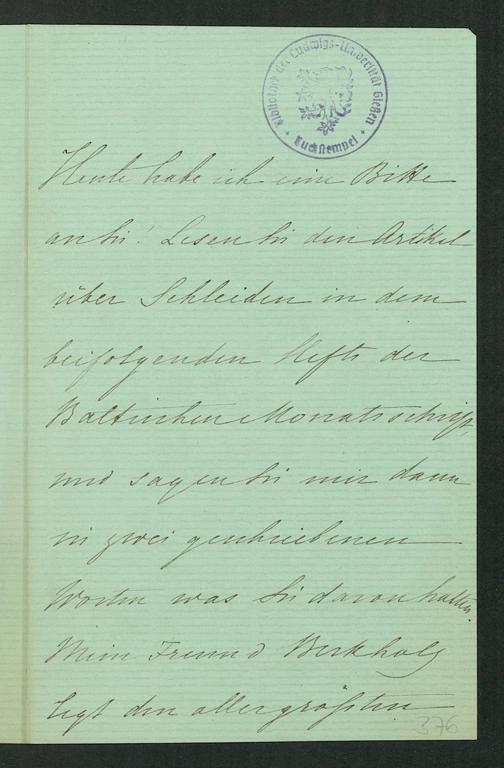 Bibliothek der Ludwigs-Universität Gießen
Buchstempel
Heute habe ich eine Bitte
an Sie! Lesen Sie den Artikel
über Schleiden in dem
beifolgenden Hefte der
Baltischen Monatsschrift,
und sagen Sie mir dann
in zwei geschriebenen
Worten was Sie davon halten.
Mein Freund Berkholz
legt den allergrößten
376